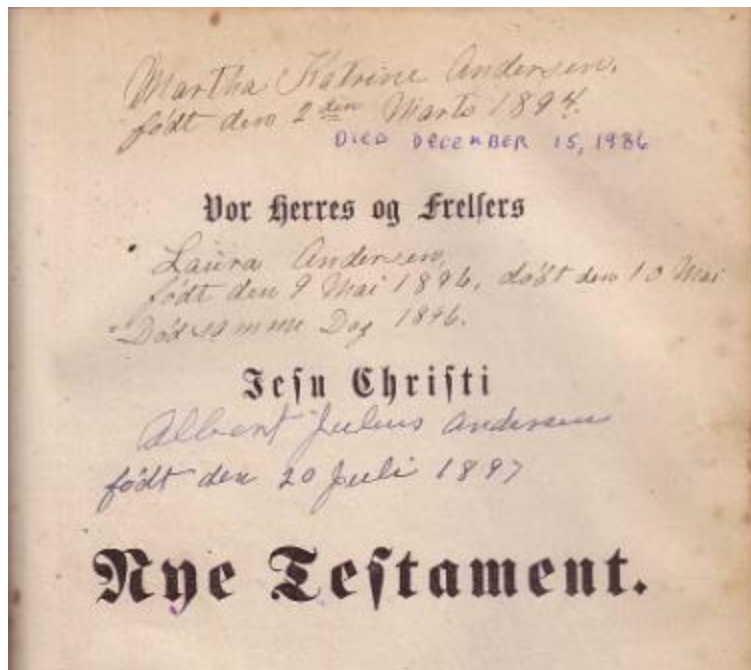 Martha Katrine Andersen.
født den 2den Marts 1894.
DIED DECEMBER 15, 1986
Vor Herres og Frelsers
Laura Andersen,
født den 9 Mai 1896, døbt den 10 Mai
Død samme Dag 1896.
Jesu Christi
Albert Julius Andersen
født den 20 Juli 1897
Nye Testament.